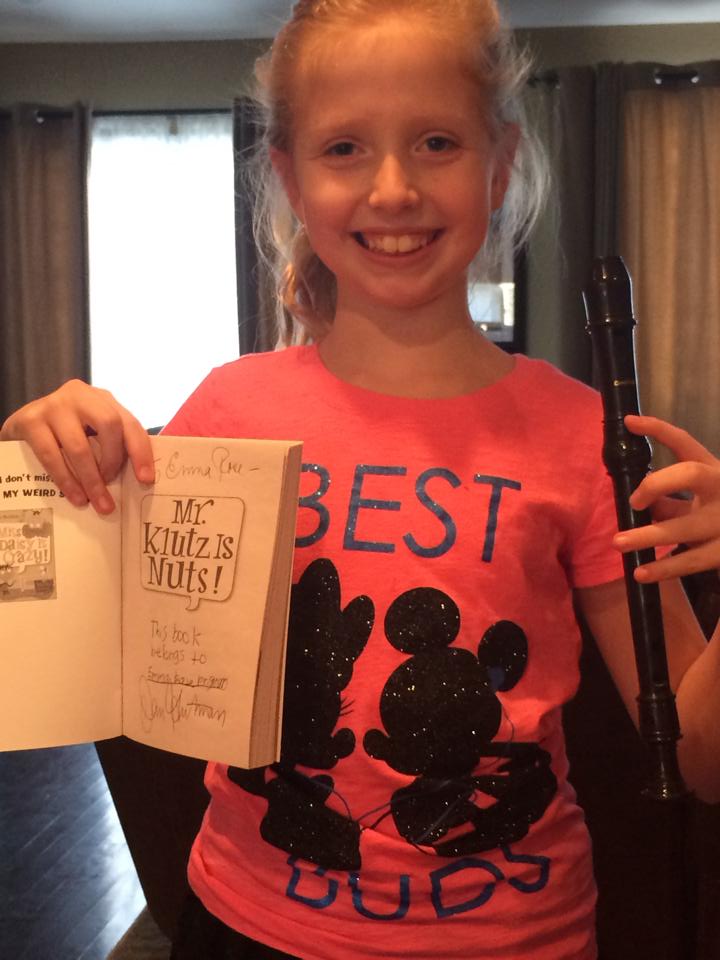 Emma Rose -
Mr.
Klutz Is
Nuts!
This book
belongs to
Emma Rose
Dan Gutman
don't mis
MY WEIRD S
Daisy Is
Crazy!
BEST
BUDS